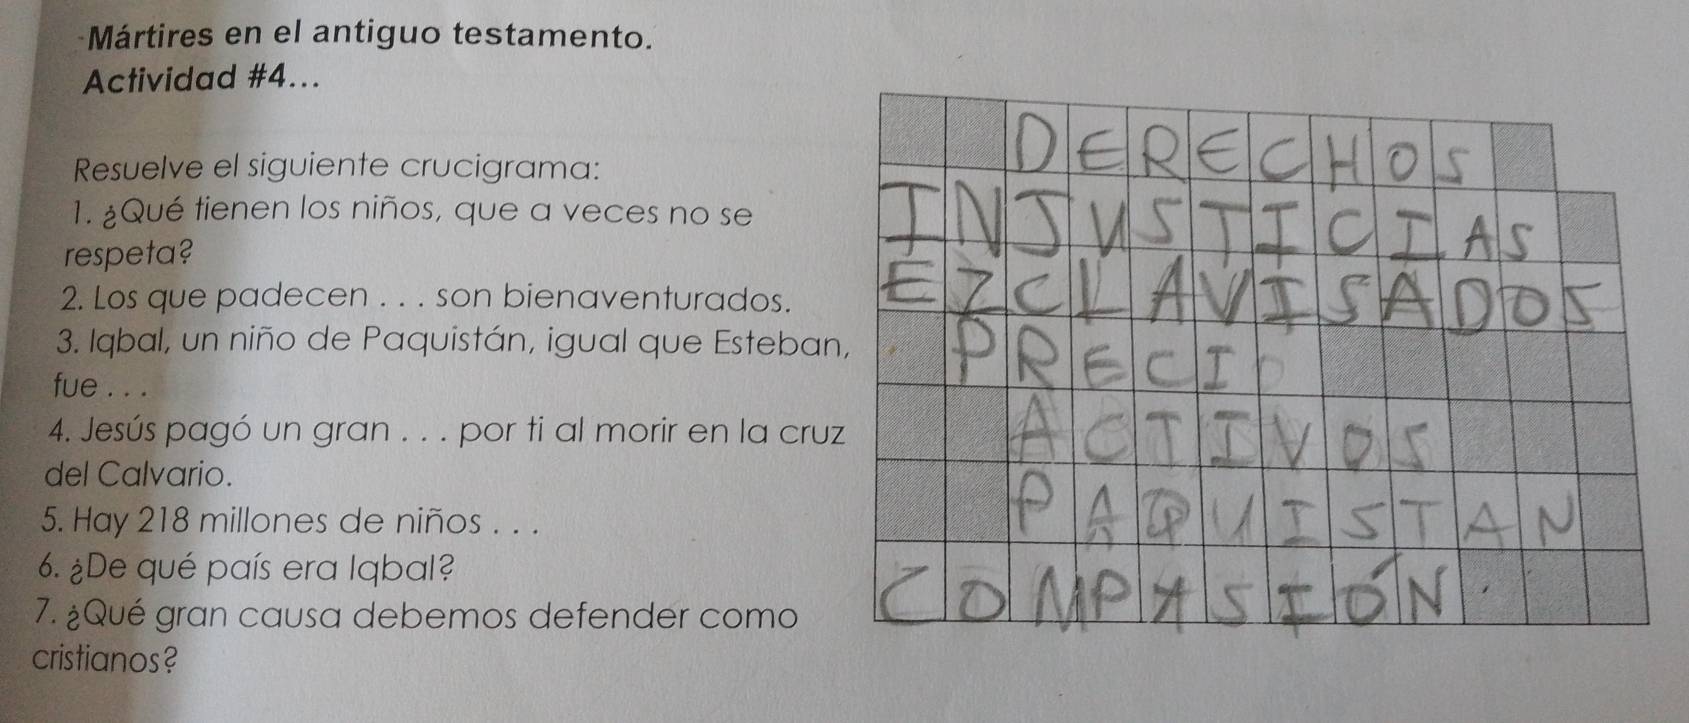 Mártires en el antiguo testamento.
Actividad #4...
Resuelve el siguiente crucigrama:
1. ¿Qué tienen los niños, que a veces no se
respeta?
2. Los que padecen . . . son bienaventurados.
3. Iqbal, un niño de Paquistán, igual que Esteban,
fue . . .
4. Jesús pagó un gran . . . por ti al morir en la cruz
del Calvario.
5. Hay 218 millones de niños . . .
6. ¿De qué país era Iqbal?
7. ¿Qué gran causa debemos defender como
cristianos?
DERECHOS
INJUSTICIAS
EZCLAVISADOS
PRECIO
ACTIVOS
PAQUISTAN
COMPASIÓN